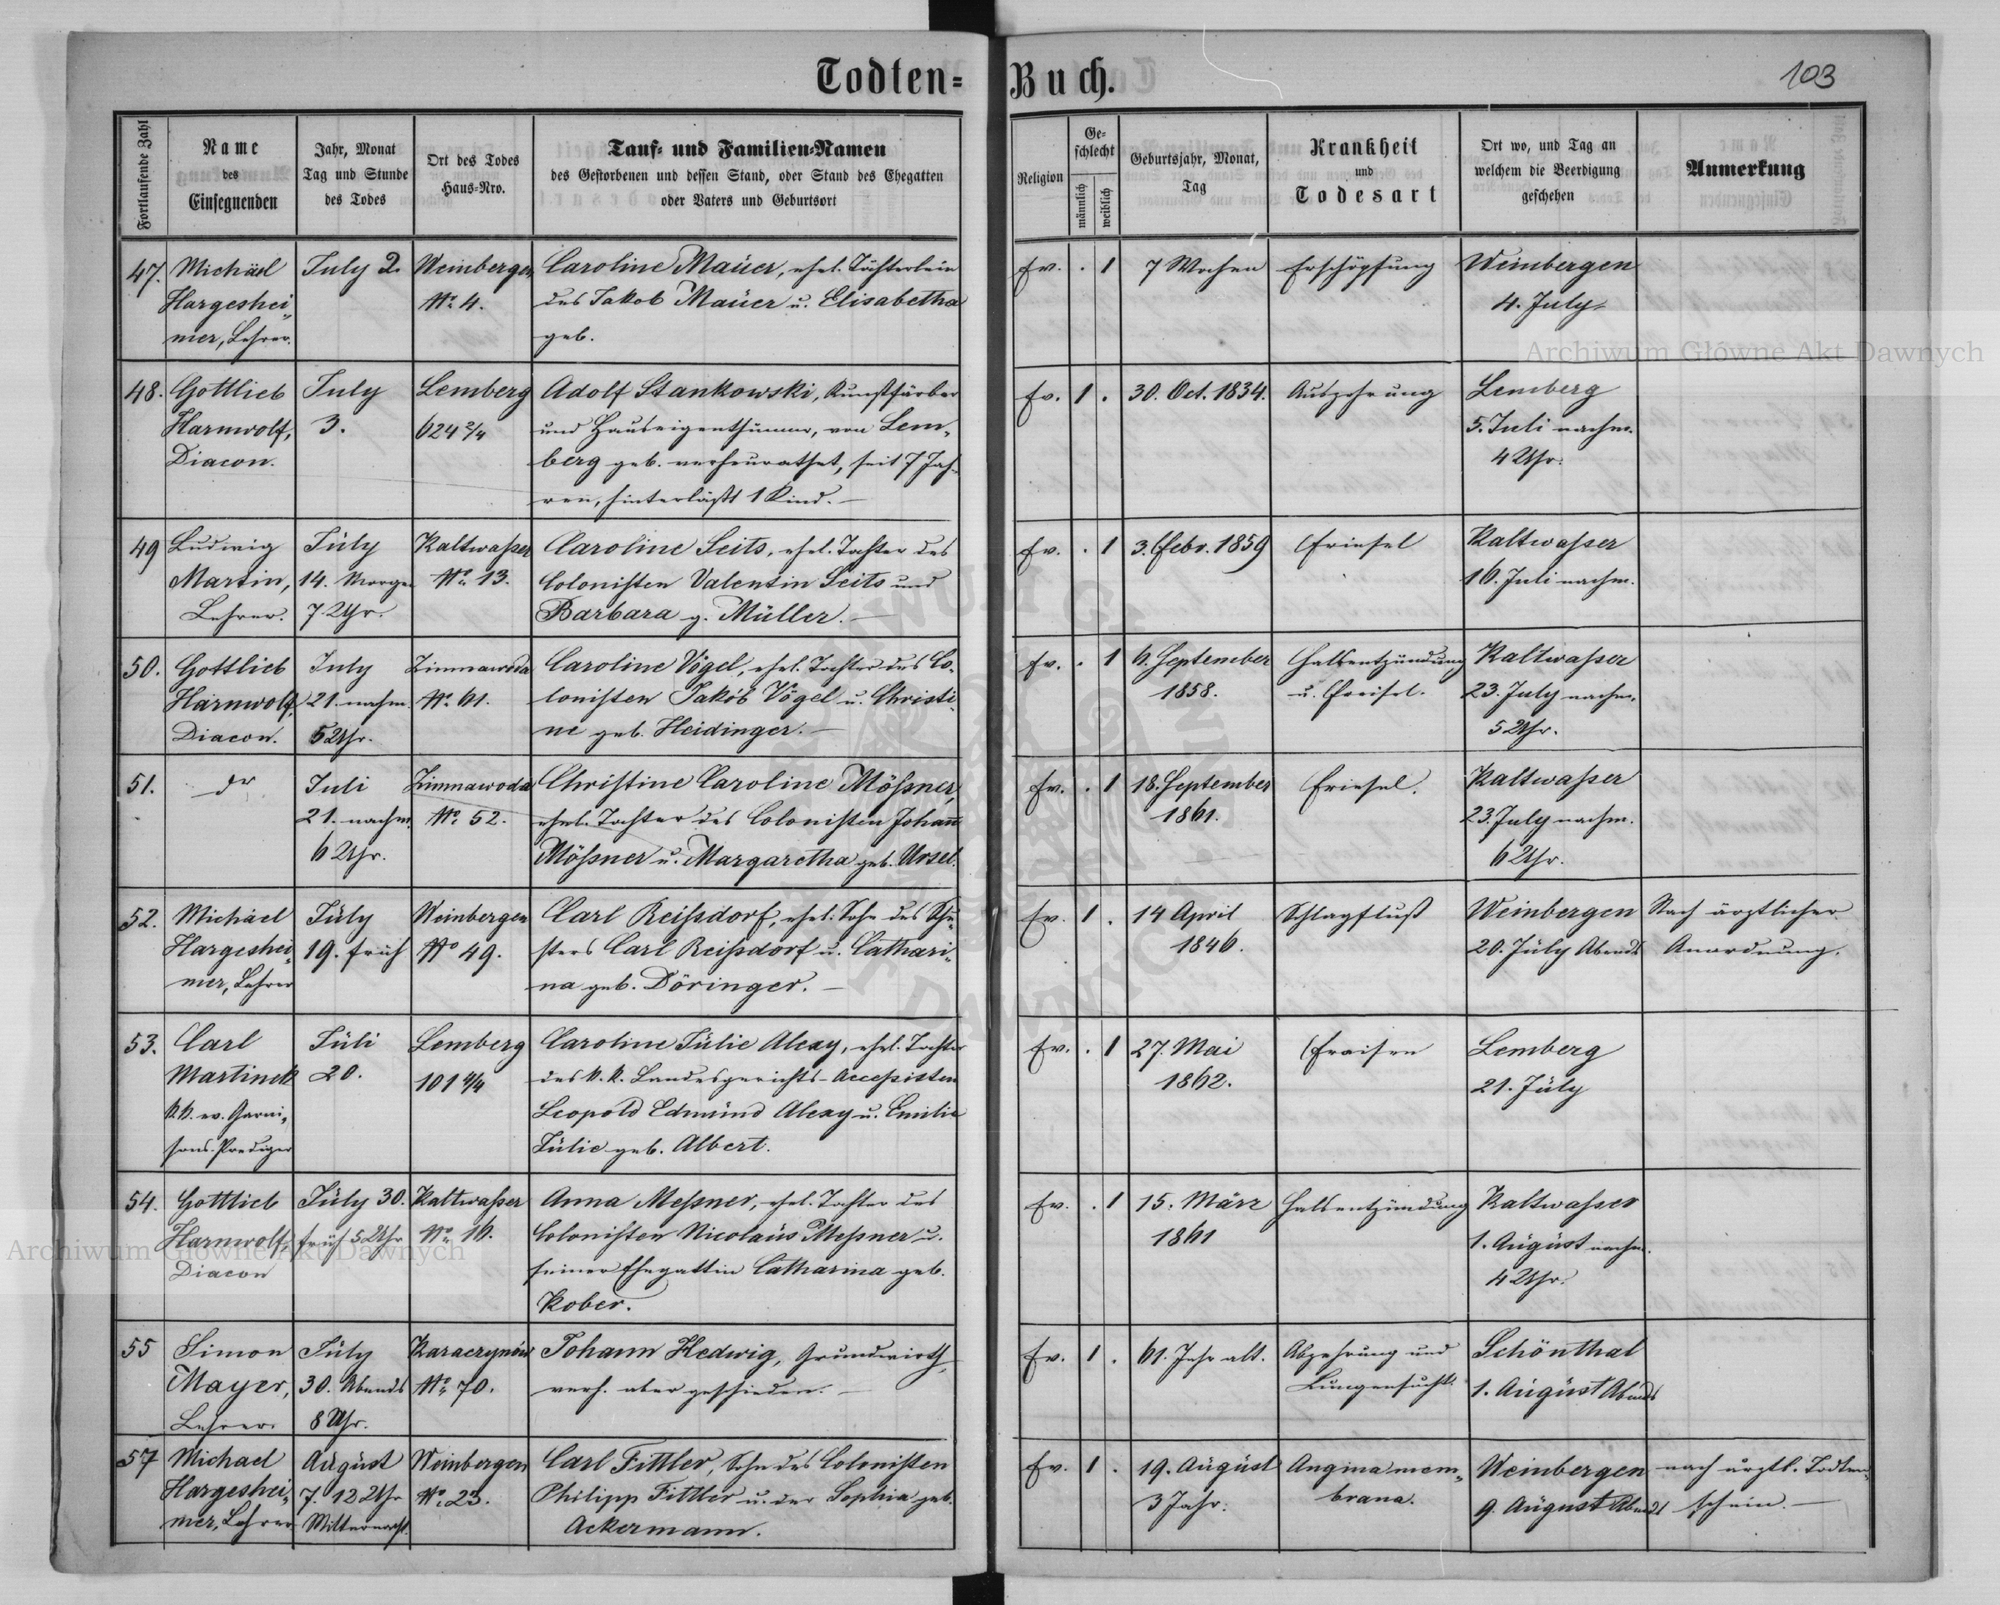 Todten-Buch.
103
Fortlaufende Zahl
Name
des
Einsegnenden
Jahr, Monat
Tag und Stunde
des Todes
Ort des Todes
Haus-Nro.
Tauf- und Familien-Namen
des Gestorbenen und dessen Stand, oder Stand des Ehegatten
oder Vaters und Geburtsort
Religion
Ge-
schlecht
männlich
weiblich
Geburtsjahr, Monat,
Tag
Krankheit
und
Todesart
Ort wo, und Tag an
welchem die Beerdigung
geschehen
Anmerkung
47.
Michäel
Hargeshei-
mer, Lehrer.
July 2.
Weinbergen
No 4.
Caroline Mauer, ehel. Töchterlein
des Jakob Mauer u. Elisabetha
geb.
Ev.
. 1
7 Wochen
Erschöpfung
Weinbergen
4. July
48.
Gottlieb
Harnwolf,
Diacon.
July
3.
Lemberg
624 2/4
Adolf Stankowski, Kunstfärber
und Hauseigenthümer, von Lem-
berg geb. verheurathet, seit 7 Jah-
ren, hinterläßt 1 Kind. —
Ev.
1 .
30. Oct. 1834.
Auszehrung
Lemberg
5. Juli nachm.
4 Uhr.
49
Ludwig
Martin,
Lehrer.
July
14. Morgen
7 Uhr.
Kaltwasser
No 13.
Caroline Seits, ehel. Tochter des
Colonisten Valentin Seits und
Barbara g. Müller. —
Ev.
. 1
3. Febr. 1859
Friesel
Kaltwasser
16. Juli nachm.
50.
Gottlieb
Harnwolf,
Diacon.
July
21. nachm.
5 Uhr.
Zimnawoda
No 61.
Caroline Vogel, ehel. Tochter des Co-
lonisten Jakob Vogel u. Christi-
ne geb. Heidinger. —
Ev.
. 1
6. September
1858.
Halsentzündung
u. Friesel.
Kaltwasser
23. July nachm.
5 Uhr.
51.
dr
Juli
21. nachm.
6 Uhr.
Zimnawoda
No 52.
Christine Caroline Mößner,
ehel. Tochter des Colonisten Johann
Mößner u. Margaretha geb. Ursel.
Ev.
. 1
18. September
1861.
Friesel.
Kaltwasser
23. July nachm.
6 Uhr.
52.
Michäel
Hargeshei-
mer, Lehrer
July
19. früh
Weinbergen
No 49.
Carl Reißdorf, ehel. Sohn des Schu-
sters Carl Reißdorf u. Cathari-
na geb. Döringer. —
Ev.
1 .
14 April
1846.
Schlagfluß
Weinbergen
20. July Abends
Nach ärztlicher
Anordnung.
53.
Carl
Martinek
k.k. ev. Garni-
sons-Prediger
Juli
20.
Lemberg
101 4/4
Caroline Julie Alexy, ehel. Tochter
des k.k. Landesgerichts-Accessisten
Leopold Edmund Alexy u. Emilie
Julie geb. Albert.
Ev.
. 1
27. Mai
1862.
Fraisen
Lemberg
21. July
54.
Gottlieb
Harnwolf,
Diacon
July 30.
früh 5 Uhr
Kaltwasser
No 16.
Anna Meßner, ehel. Tochter des
Colonisten Nicolaus Meßner u.
seiner Ehegattin Catharina geb.
Kober.
Ev.
. 1
15. März
1861
Halsentzündung
Kaltwasser
1. August nachm.
4 Uhr.
55
Simon
Mayer,
Lehrer.
July
30. Abends
8 Uhr.
Karaczynów
No 70.
Johann Hedwig, Grundwirth,
verh. aber geschieden. —
Ev.
1 .
61. Jahr alt.
Abzehrung und
Lungensucht.
Schönthal
1. August Abends
57
Michael
Hargeshei-
mer, Lehrer
August
7. 12 Uhr
Mitternacht.
Weinbergen
No 23.
Carl Fittler, Sohn des Colonisten
Philipp Fittler u. der Sophia geb.
Ackermann.
Ev.
1 .
19. August
3 Jahr.
Angina mem-
brana.
Weinbergen
9. August Abends
nach ärztl. Todten-
schein. —
Archiwum Główne Akt Dawnych
Archiwum Główne Akt Dawnych